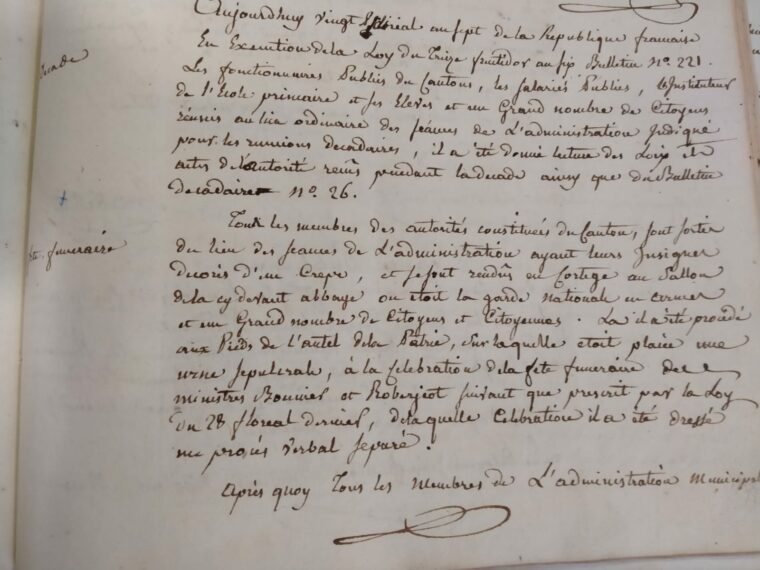 Aujourdhuy vingt prairial au sept de la Republique francaise
En Execution de la Loy du Treize fructidor an six Bulletin No. 221.
Decade
Les fonctionnaires Publics du Canton, les salariés Publics, l'Instituteur
de l'Ecole primaire et ses Eleves et un Grand nombre de Citoyens
réunis au lieu ordinaire des séances de L'administration Indiqué
pour les reunions decadaires, il a été donné lecture des Loix et
actes de l'autorité reçus pendant la decade ainsy que du Bulletin
Decadaire No. 26.
fete funeraire
Tous les membres des autorités constituées du Canton, sont sortis
du lieu des seances de L'administration ayant leurs Insignes
decorés d'un Crepe, et se sont rendus en Cortege au Sallon
de la cy devant abbaye ou etoit la garde national en armes
et un Grand nombre de Citoyens et Citoyennes. La il a été procédé
aux Pieds de l'autel de la Patrie, sur laquelle etoit placée une
urne sepulcrale, à la celebration de la fete funeraire des
ministres Bonnier et Roberjeot suivant que prescrit par la Loy
du 28 floreal dernier, de laquelle Celebration il a été dressé
un procés verbal separé.
Après quoy Tous les Membres de L'administration Municipal